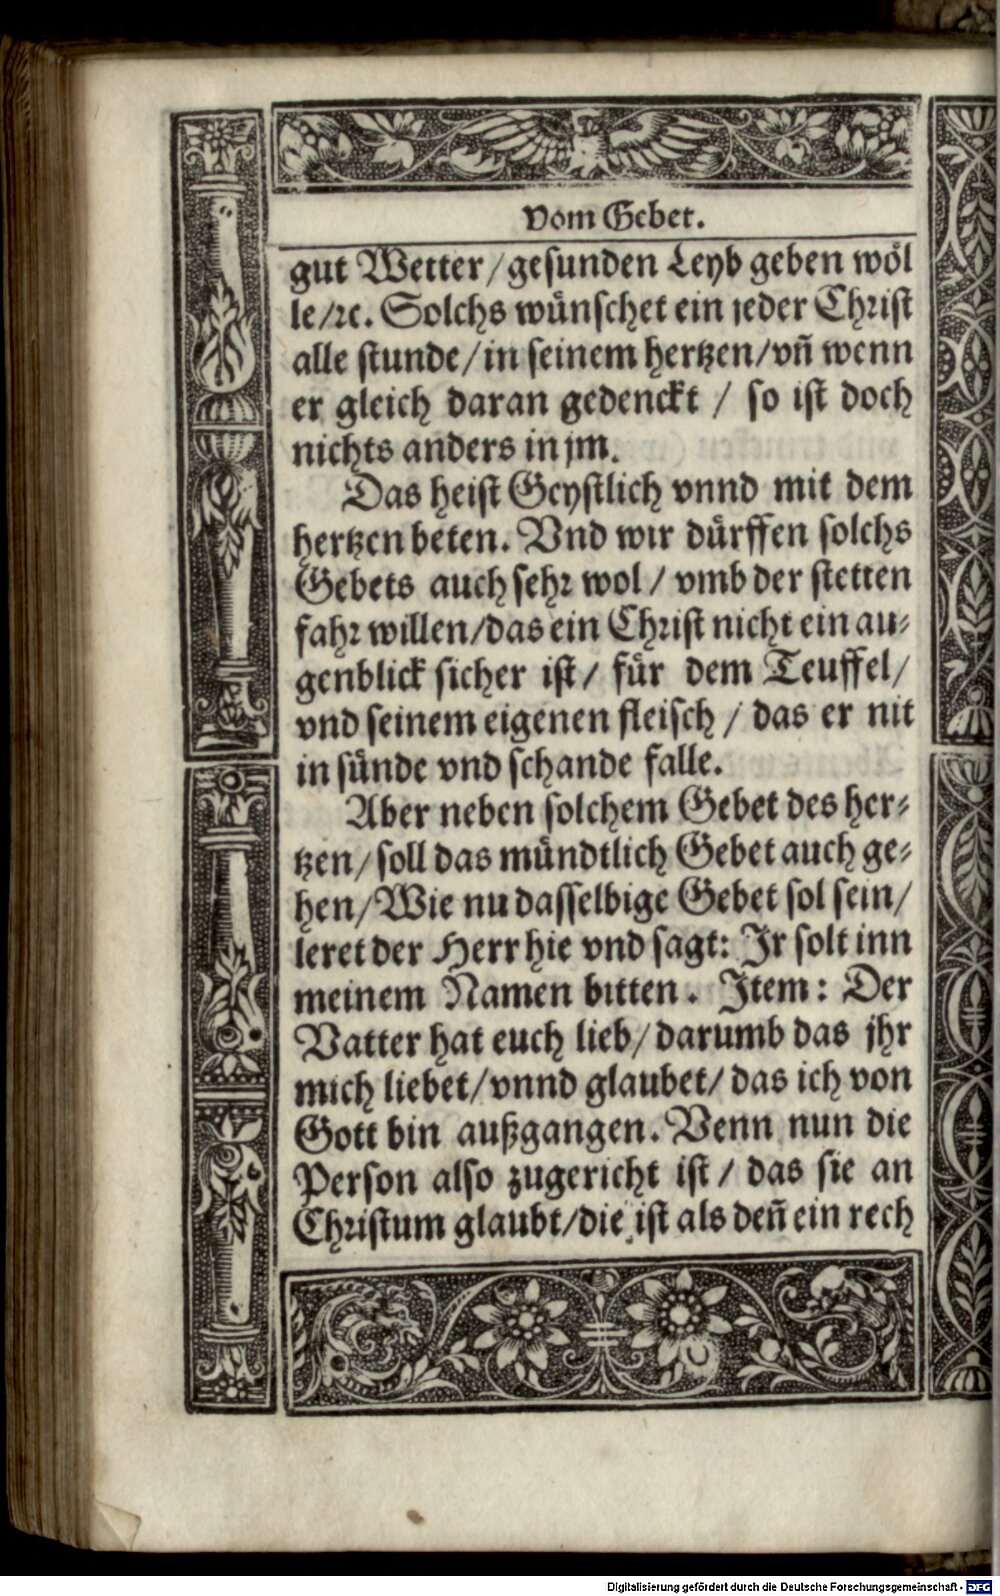 Vom Gebet.
gut Wetter/gesunden Leyb geben wöl
le/ꝛc. Solchs wünschet ein jeder Christ
alle stunde/in seinem hertzen/vñ wenn
er gleich daran gedenckt / so ist doch
nichts anders in jm.
Das heist Geystlich vnnd mit dem
hertzen beten. Vnd wir dürffen solchs
Gebets auch sehr wol / vmb der stetten
fahr willen/das ein Christ nicht ein au-
genblick sicher ist/ für dem Teuffel/
vnd seinem eigenen fleisch / das er nit
in sünde vnd schande falle.
Aber neben solchem Gebet des her-
tzen/soll das mündtlich Gebet auch ge-
hen/Wie nu dasselbige Gebet sol sein/
leret der Herr hie vnd sagt: Jr solt inn
meinem Namen bitten. Jtem: Der
Vatter hat euch lieb/darumb das jhr
mich liebet/vnnd glaubet/das ich von
Gott bin außgangen. Venn nun die
Person also zugericht ist / das sie an
Christum glaubt/die ist als deñ ein rech
Digitalisierung gefördert durch die Deutsche Forschungsgemeinschaft - DFG